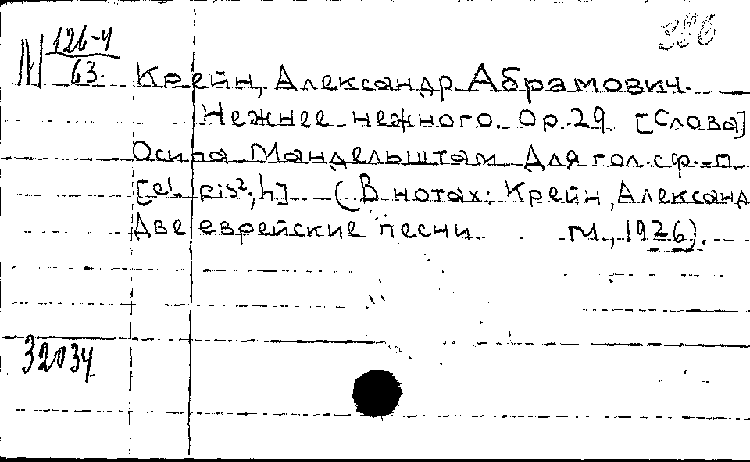 386
N 126-4
63.
Крейн, Александр Абрамович.
Нежнее нежного. Op. 29. [Слова]
Осипа Мандельштам. Для гол. с ф.-п.
[cis², h] (В нотах: Крейн, Александ
Две еврейские песни. М., 1926).
32034